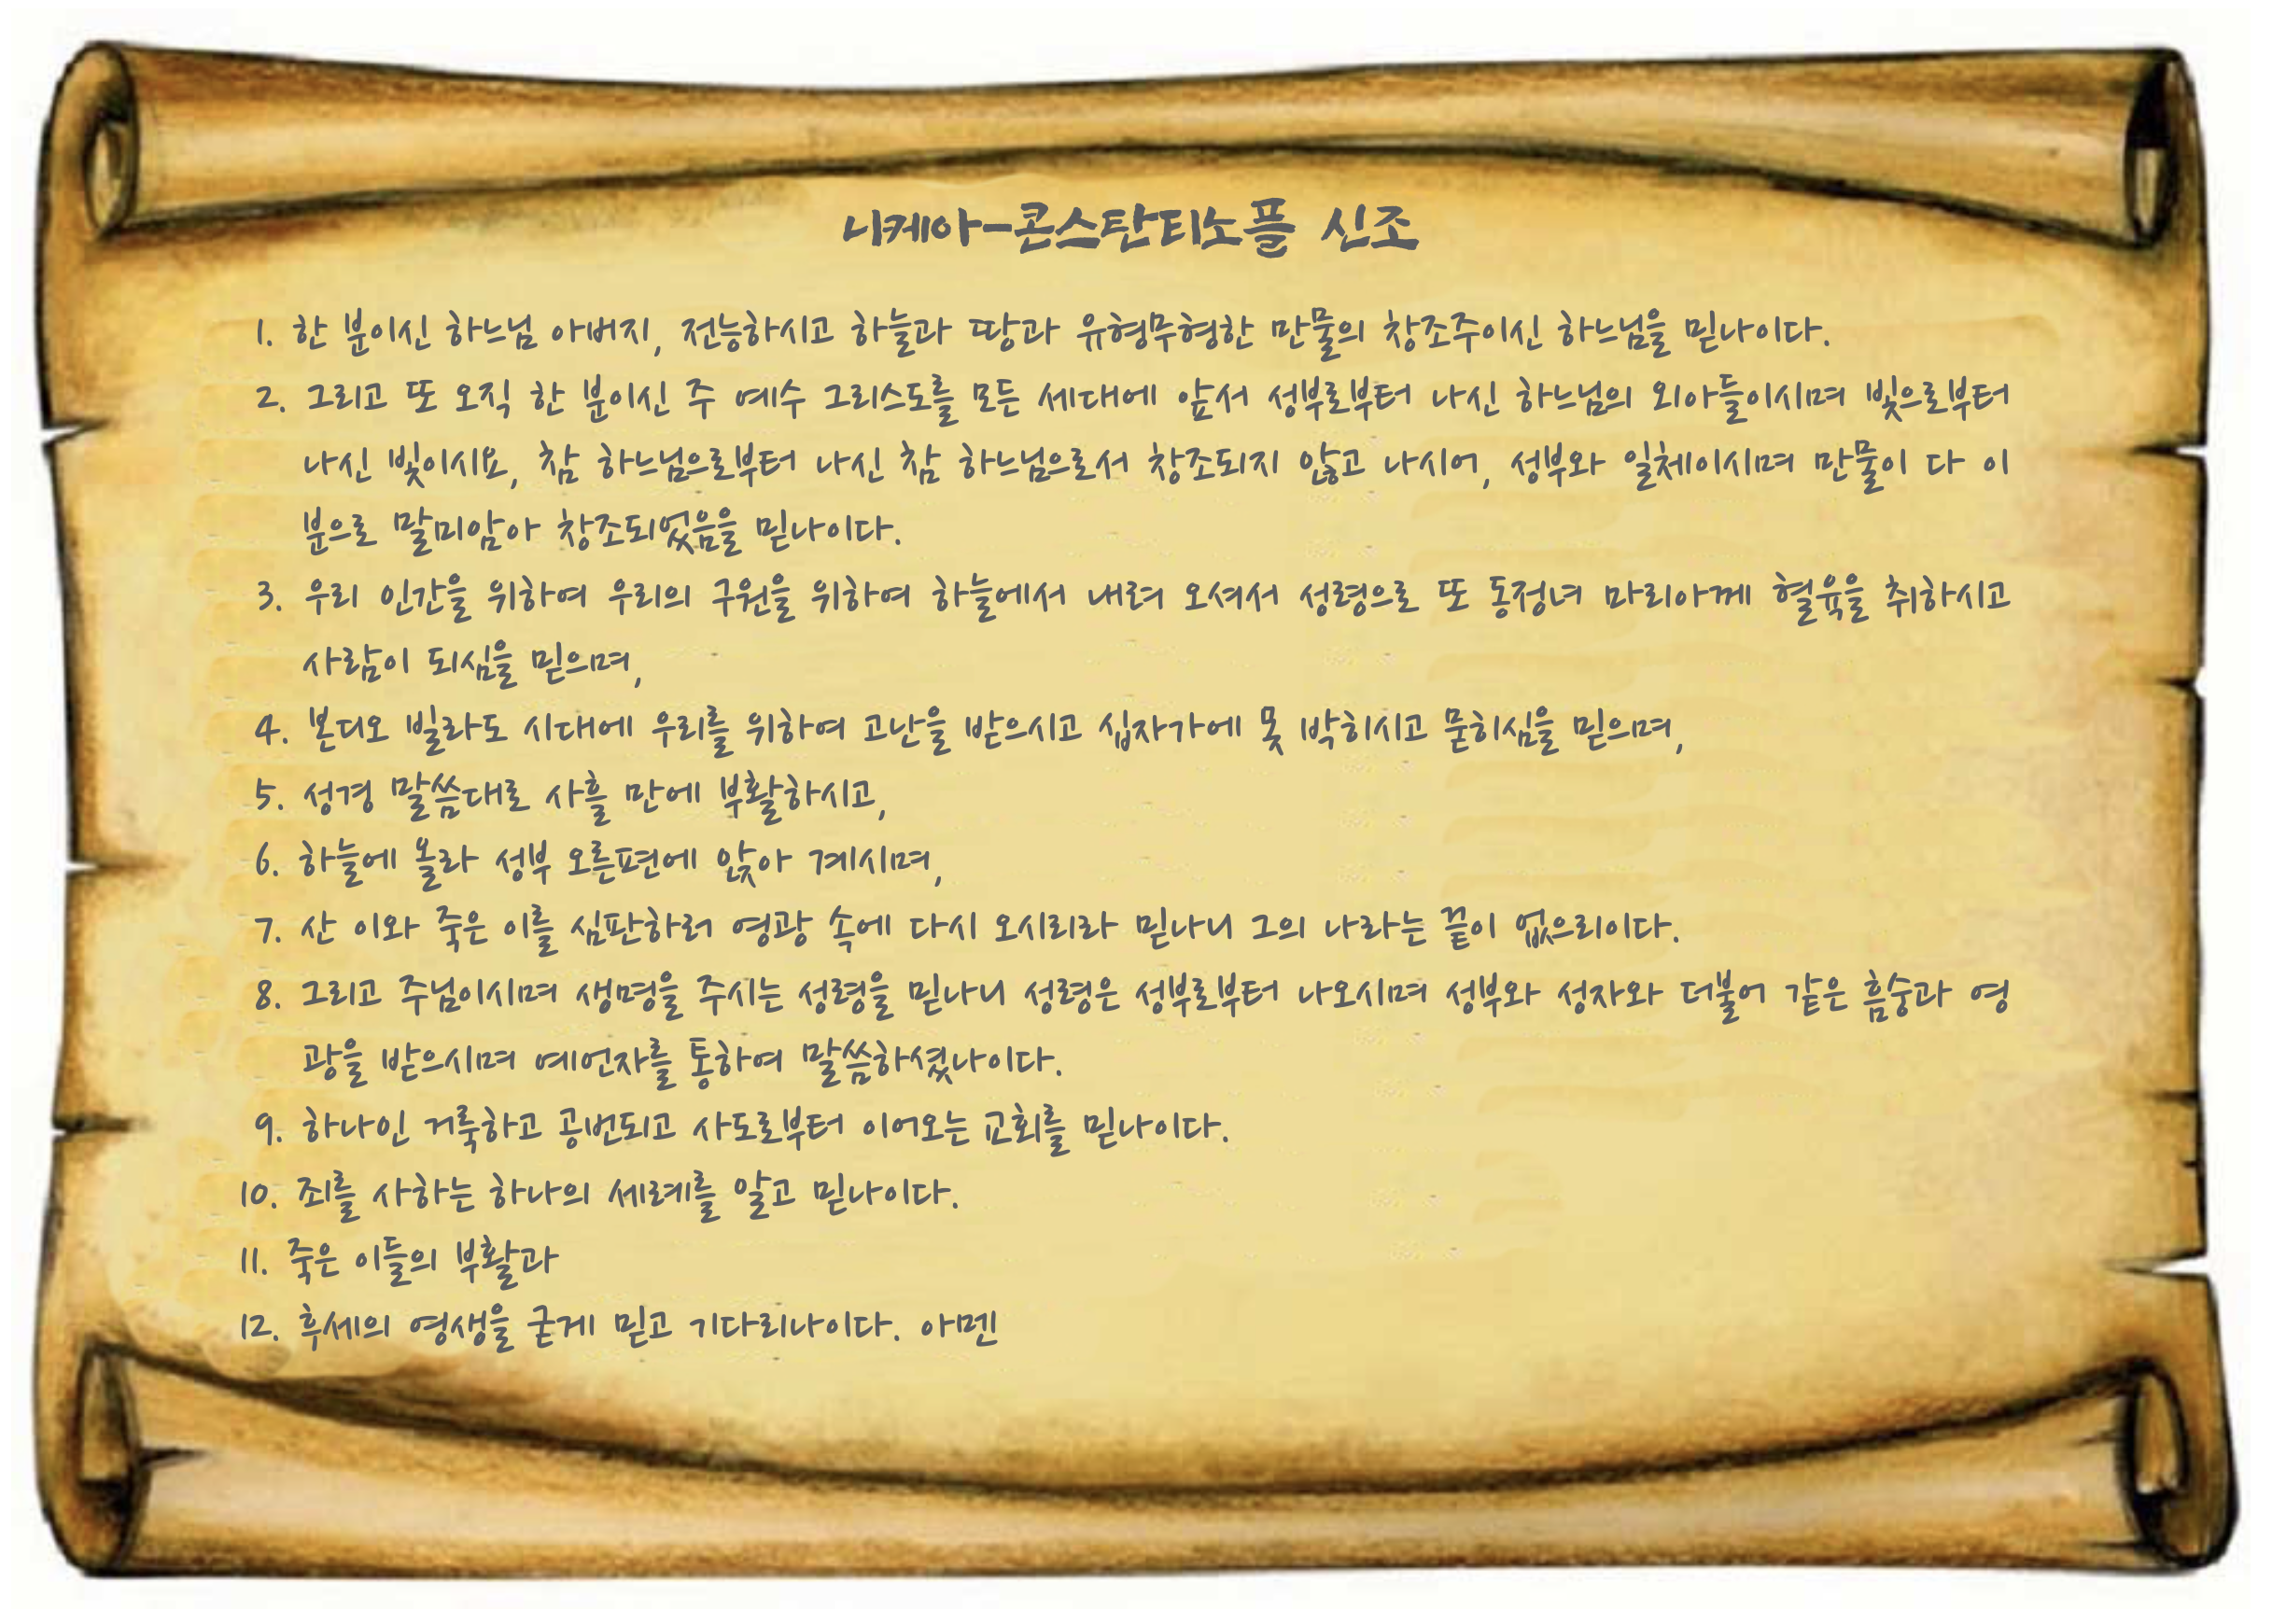 니케아-콘스탄티노플 신조
1. 한 분이신 하느님 아버지, 전능하시고 하늘과 땅과 유형무형한 만물의 창조주이신 하느님을 믿나이다.
2. 그리고 또 오직 한 분이신 주 예수 그리스도를 모든 세대에 앞서 성부로부터 나신 하느님의 외아들이시며 빛으로부터
나신 빛이시요, 참 하느님으로부터 나신 참 하느님으로서 창조되지 않고 나시어, 성부와 일체이시며 만물이 다 이
분으로 말미암아 창조되었음을 믿나이다.
3. 우리 인간을 위하여 우리의 구원을 위하여 하늘에서 내려 오셔서 성령으로 또 동정녀 마리아께 혈육을 취하시고
사람이 되심을 믿으며,
4. 본디오 빌라도 시대에 우리를 위하여 고난을 받으시고 십자가에 못 박히시고 묻히심을 믿으며,
5. 성경 말씀대로 사흘 만에 부활하시고,
6. 하늘에 올라 성부 오른편에 앉아 계시며,
7. 산 이와 죽은 이를 심판하러 영광 속에 다시 오시리라 믿나니 그의 나라는 끝이 없으리이다.
8. 그리고 주님이시며 생명을 주시는 성령을 믿나니 성령은 성부로부터 나오시며 성부와 성자와 더불어 같은 흠숭과 영
광을 받으시며 예언자를 통하여 말씀하셨나이다.
9. 하나인 거룩하고 공번되고 사도로부터 이어오는 교회를 믿나이다.
10. 죄를 사하는 하나의 세례를 알고 믿나이다.
11. 죽은 이들의 부활과
12. 후세의 영생을 굳게 믿고 기다리나이다. 아멘